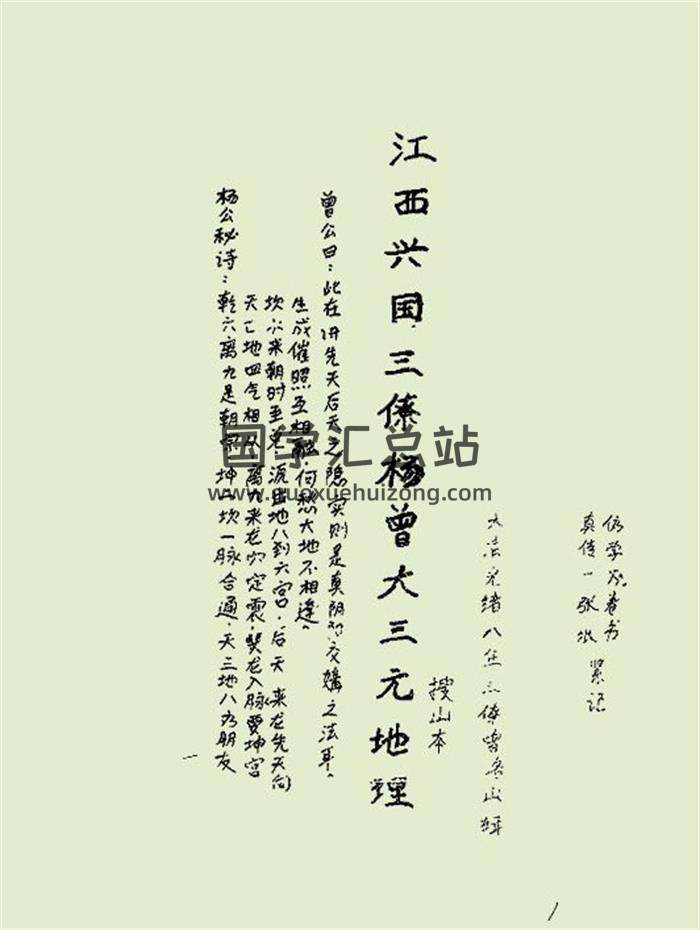 假学万卷书
真传一张纸 紧记
大清光绪八年三僚曾孟山辑
江西兴国三僚杨曾大三元地理
搜山本
曾公曰:此在讲先天后天之隐实则是真阴阳交媾之法耳。
生成催照互相融何愁大地不相逢。
坎水来朝时至兑,流出地八到六宫,后天来龙先天向
天七地四气相从,离九来龙穴定震,巽龙入脉要坤宫
杨公秘诗:乾六离九是朝宗,坤一坎一脉合通,天三地八为朋友
国学汇总站
www.guoxuehuizong.com
一
1